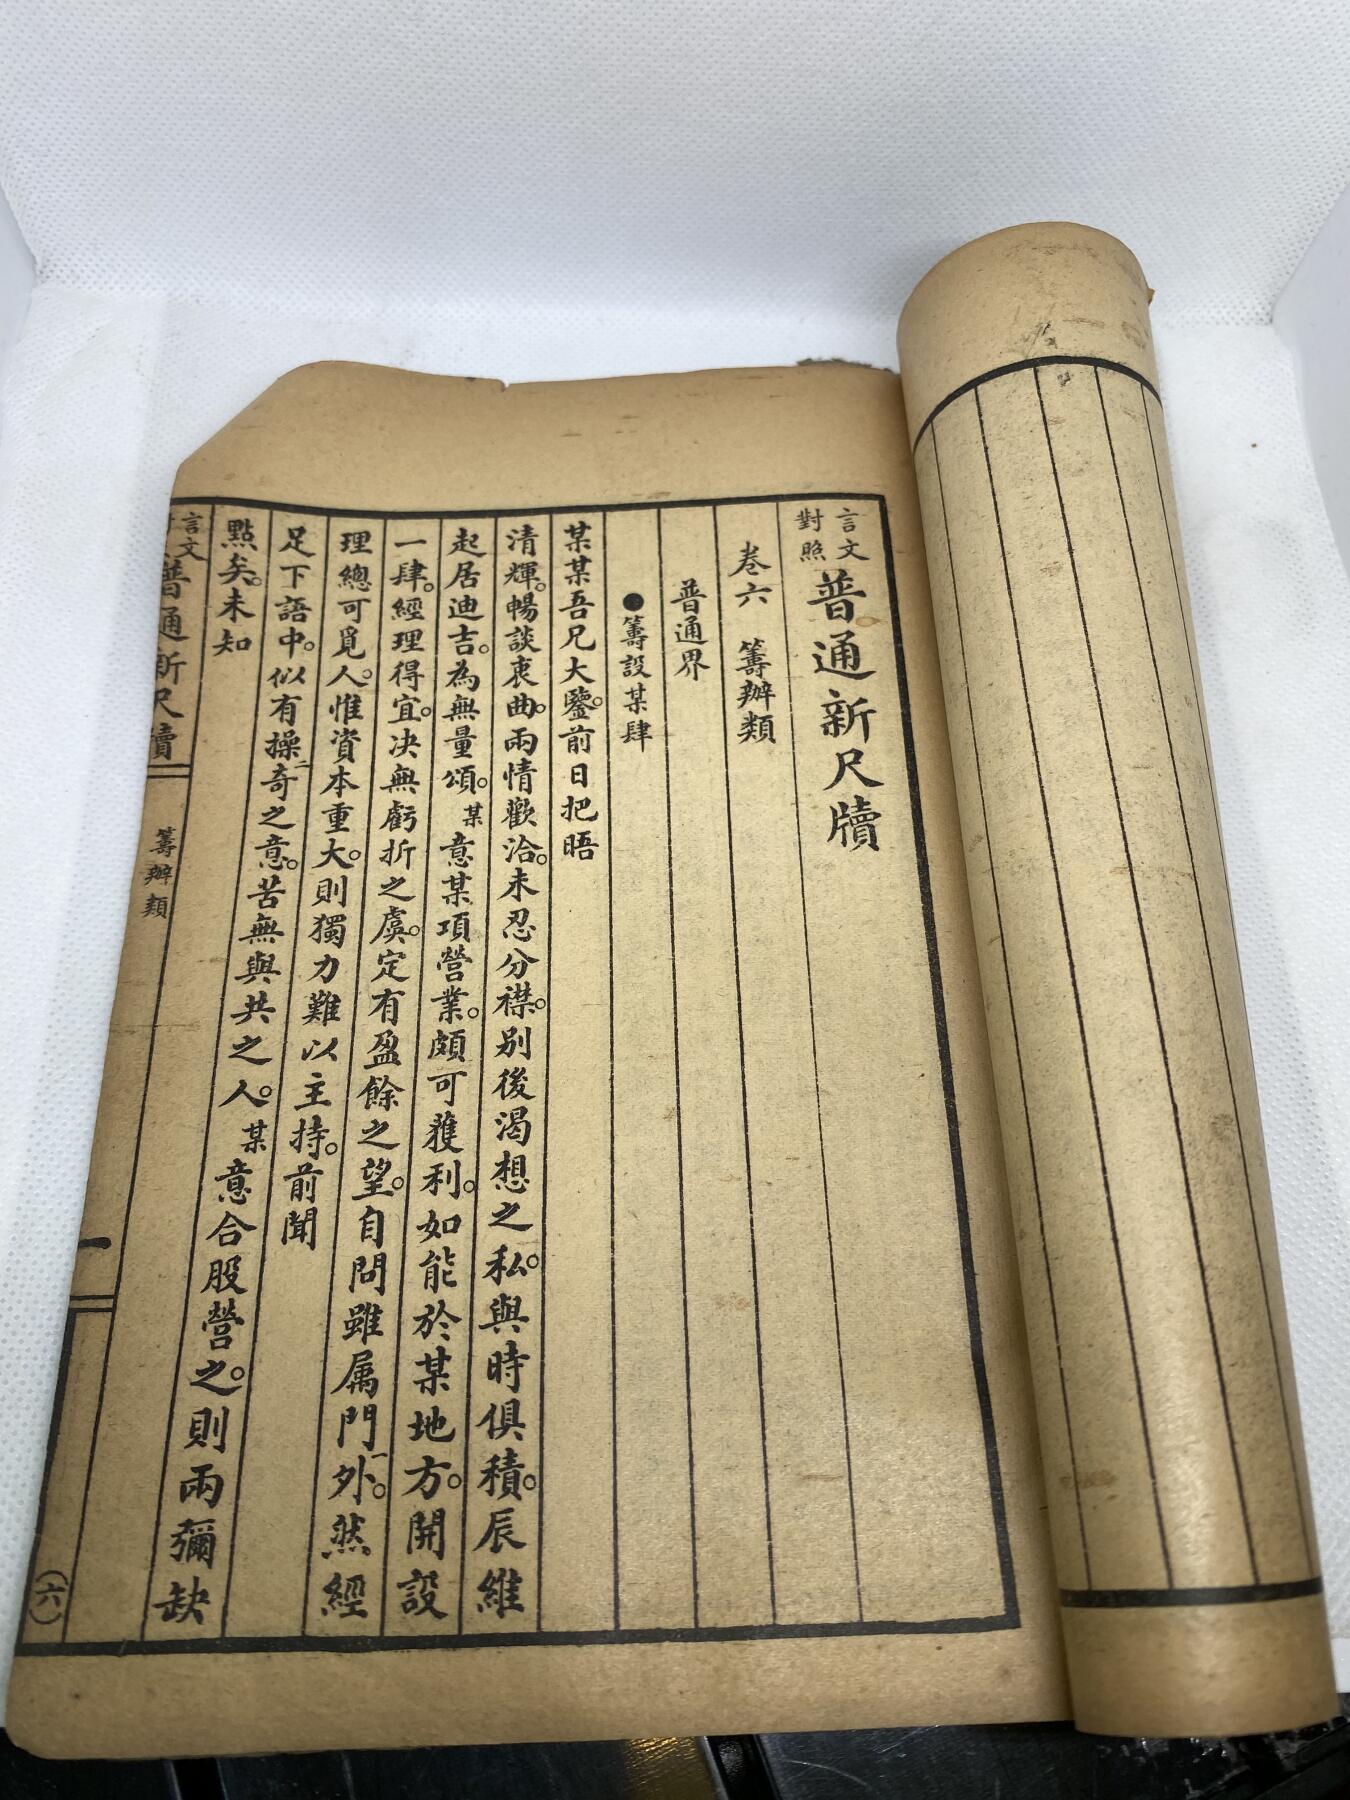 言文對照普通新尺牘
卷六　籌辦類
普通界
●籌設某肆
某某吾兄大鑒。前日把晤
清輝。暢談衷曲。兩情歡洽。未忍分襟。別後渴想之私。與時俱積。辰維
起居迪吉。為無量頌。某意某項營業。頗可獲利。如能於某地方。開設
一肆。經理得宜。决無虧折之虞。定有盈餘之望。自問雖属門外。然經
理總可覓人。惟資本重大。則獨力難以主持。前聞
足下語中。似有操奇之意。苦無與共之人。某意合股營之。則兩彌缺
點矣。未知
言文對普通新尺牘　籌辦類　一　(六)